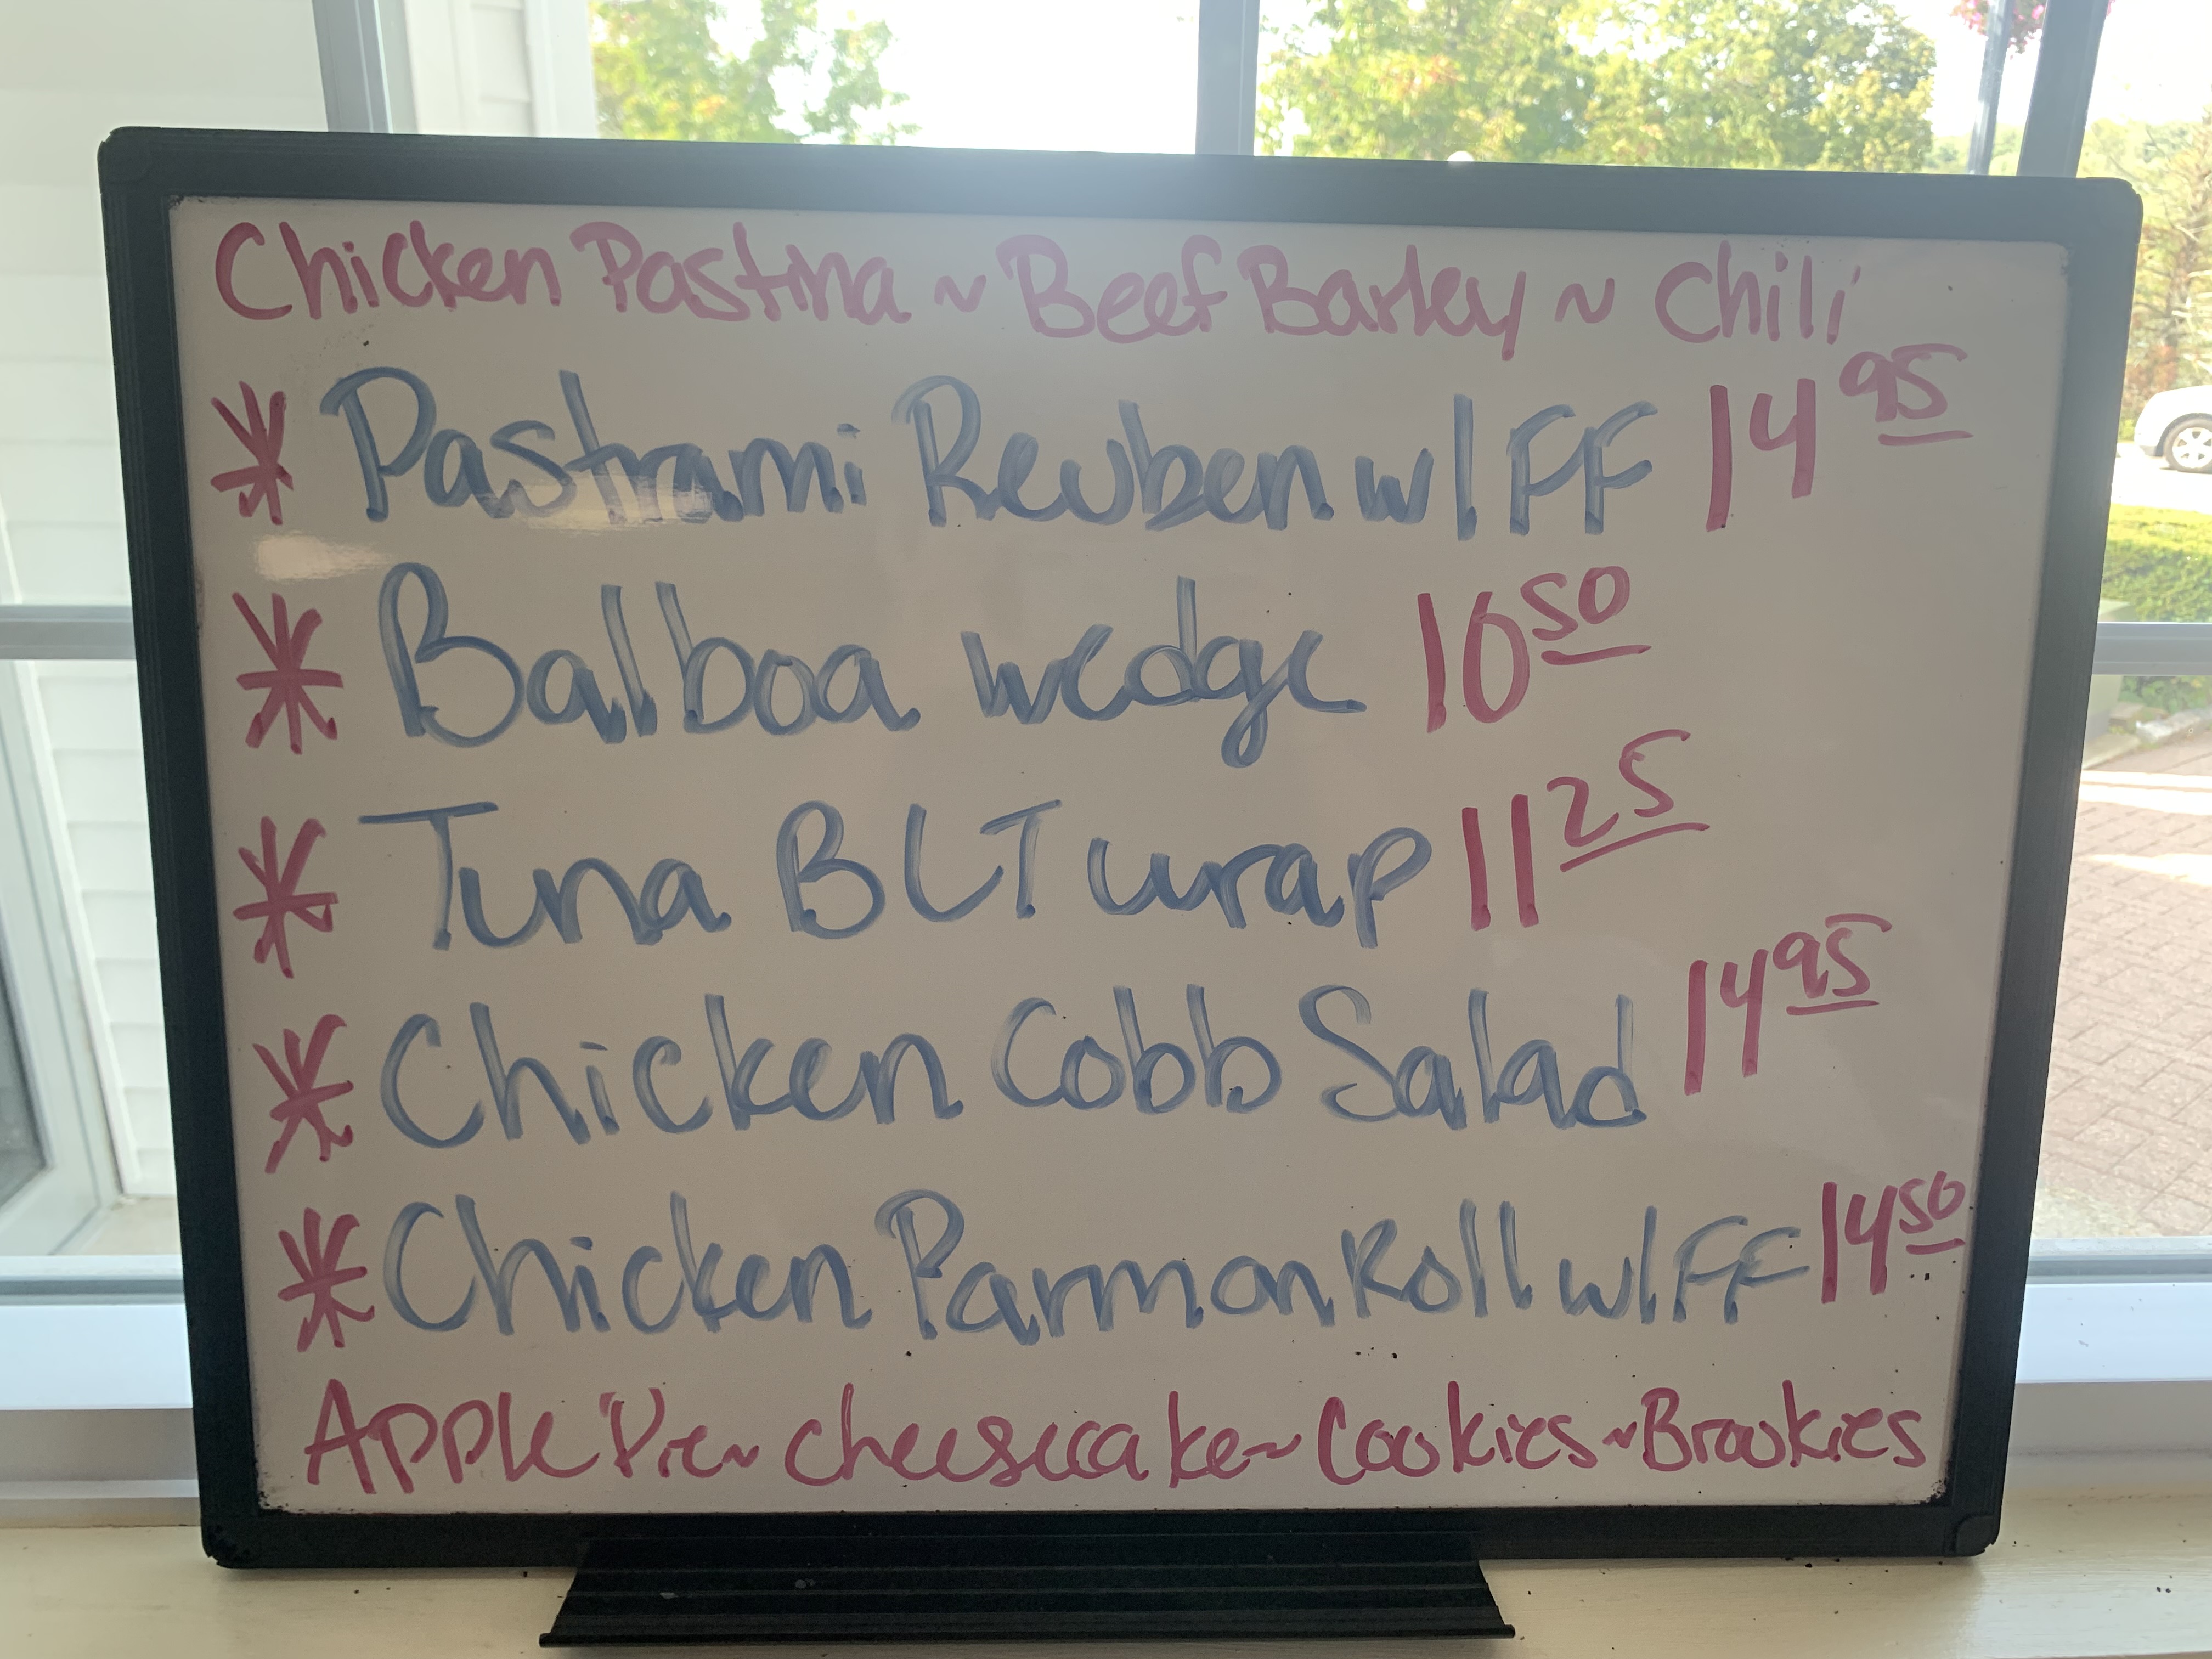 Chicken Pastina ~ Beef Barley ~ Chili
* Pastrami Reuben w/ FF 14 95
* Balboa wedge 10 50
* Tuna BLT wrap 11 25
* Chicken Cobb Salad 14 95
* Chicken Parm on Roll w/ FF 14 50
Apple Pie ~ cheesecake ~ Cookies ~ Brookies